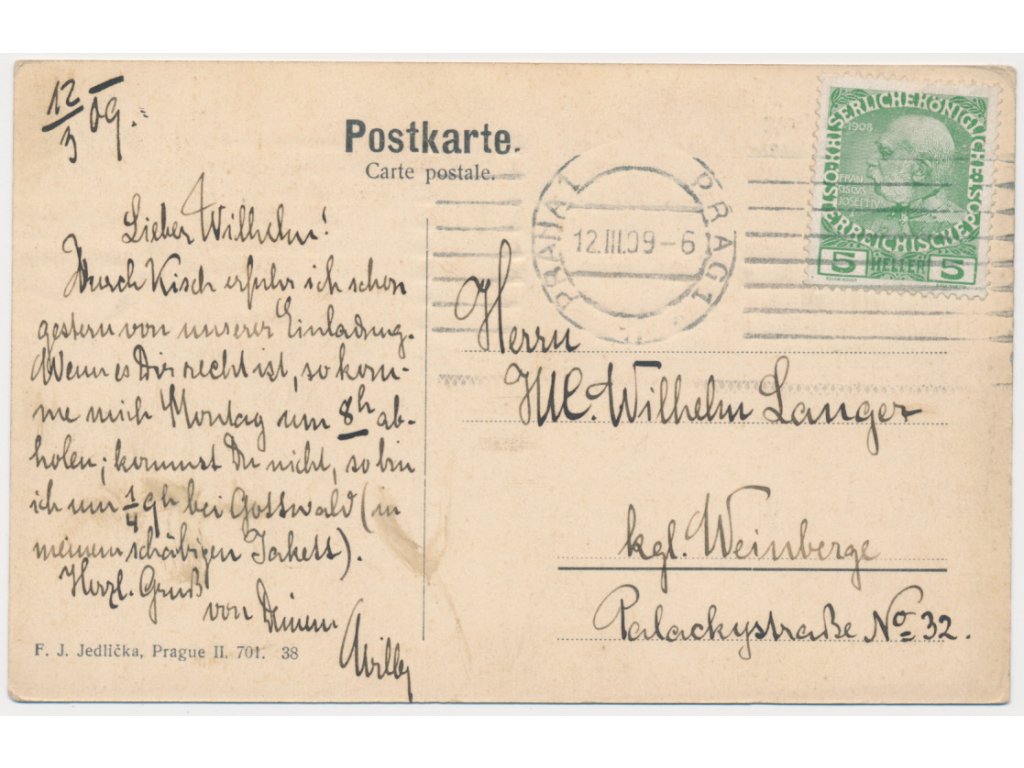 12/3 09.
Postkarte.
Carte postale.
Lieber Wilhelm!
Durch Kisch erfuhr ich schon
gestern von unserer Einladung.
Wenn es Dir recht ist, so kom-
me mich Montag um 8h ab-
holen; kommst Du nicht, so bin
ich um 1/4 9h bei Gottwald (in
meinem schäbigen Jakett).
Herzl. Gruß
von Deinem
Willy
F. J. Jedlička, Prague II. 701. 38
PRAHA 1 PRAG 1
12.III.09-6
KAISERLICHE KÖNIGLICHE
ÖSTERREICHISCHE POST
1908
FRAN
CISCUS
JOSEPH I
5 HELLER 5
Herrn
Wilhelm Langer
kgl. Weinberge
Palackystraße No 32.